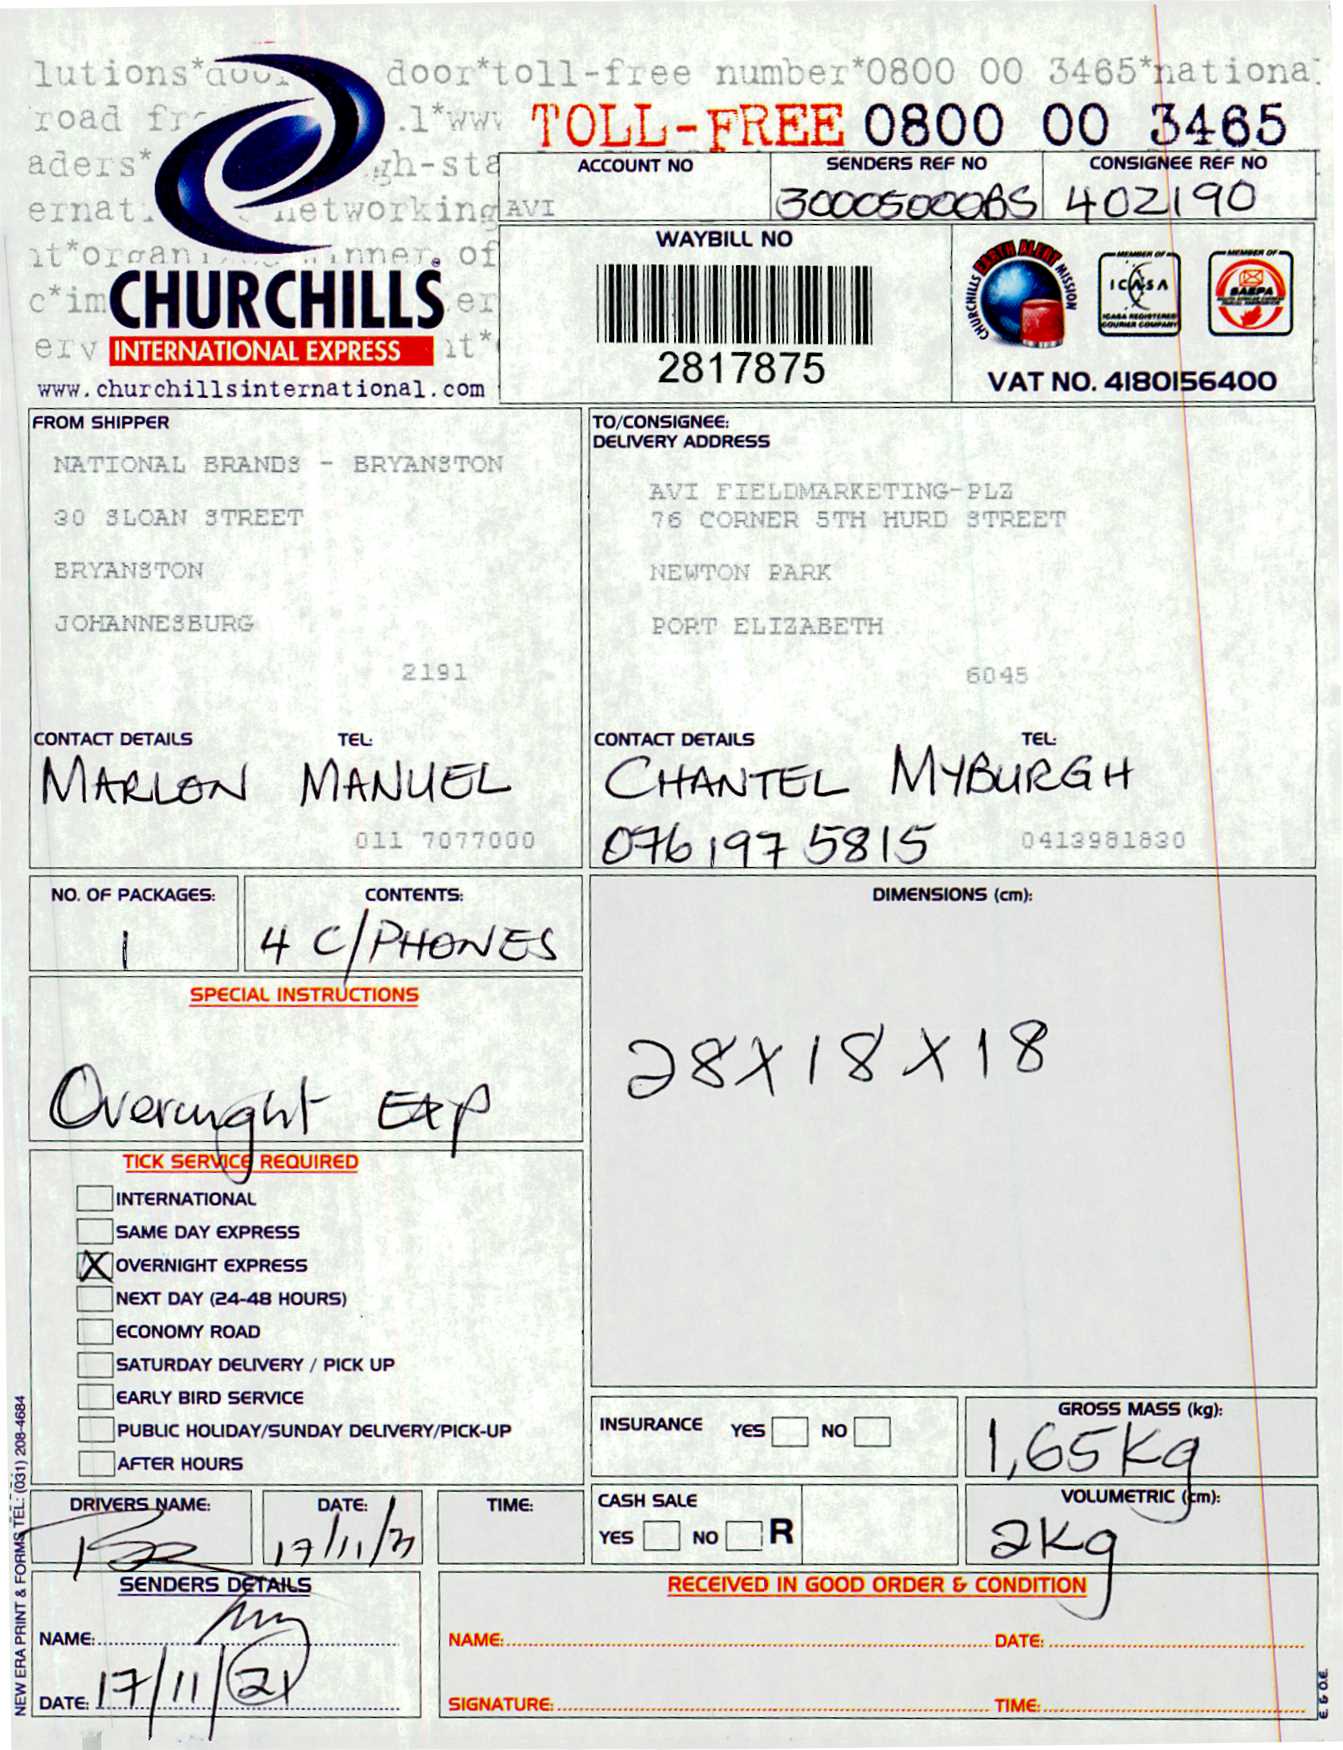 lutions*door door*toll-free number*0800 00 3465*national
road fr .l*www
TOLL-FREE 0800 00 3465
aders* gh-sta
ernat networking
it*organi winner of
c*im er
erv it*
CHURCHILLS
INTERNATIONAL EXPRESS
www.churchillsinternational.com
ACCOUNT NO
AVI
SENDERS REF NO
CONSIGNEE REF NO
402190
WAYBILL NO
2817875
CHURCHILLS EARTH ALERT MISSION
MEMBER OF
ICASA
ICASA REGISTERED
COURIER COMPANY
MEMBER OF
SAEPA
VAT NO. 4180156400
FROM SHIPPER
NATIONAL BRANDS - BRYANSTON
30 SLOAN STREET
BRYANSTON
JOHANNESBURG
2191
CONTACT DETAILS TEL:
MARLON MANUEL
011 7077000
TO/CONSIGNEE:
DELIVERY ADDRESS
AVI FIELDMARKETING-PLZ
76 CORNER 5TH HURD STREET
NEWTON PARK
PORT ELIZABETH
6045
CONTACT DETAILS TEL:
CHANTEL MYBURGH
076 197 5815 0413981830
NO. OF PACKAGES:
1
CONTENTS:
4 C/PHONES
DIMENSIONS (cm):
28X18X18
SPECIAL INSTRUCTIONS
Overnight Exp
TICK SERVICE REQUIRED
INTERNATIONAL
SAME DAY EXPRESS
X OVERNIGHT EXPRESS
NEXT DAY (24-48 HOURS)
ECONOMY ROAD
SATURDAY DELIVERY / PICK UP
EARLY BIRD SERVICE
PUBLIC HOLIDAY/SUNDAY DELIVERY/PICK-UP
AFTER HOURS
INSURANCE YES NO
GROSS MASS (kg):
1,65kg
CASH SALE
YES NO R
VOLUMETRIC (cm):
2kg
DRIVERS NAME:
DATE:
17/11/21
TIME:
SENDERS DETAILS
NAME:
DATE: 17/11/21
RECEIVED IN GOOD ORDER & CONDITION
NAME: DATE:
SIGNATURE: TIME:
NEW ERA PRINT & FORMS TEL: (031) 208-4684
E. & O.E.